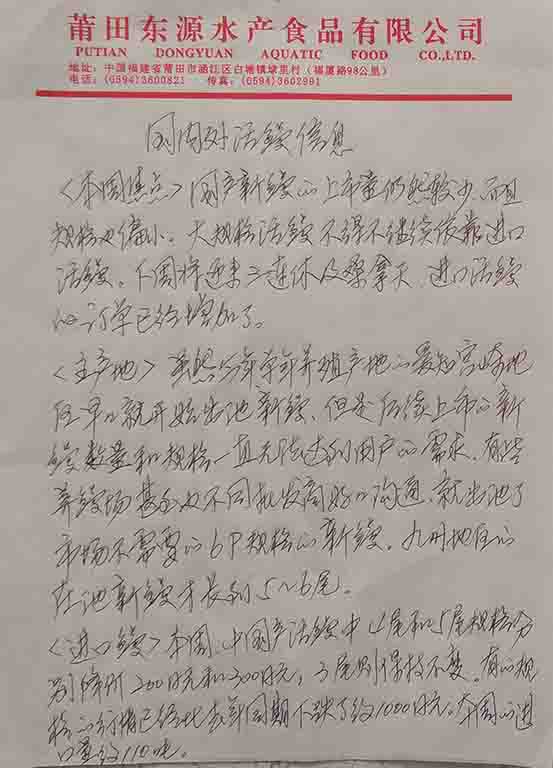 莆田东源水产食品有限公司
PUTIAN DONGYUAN AQUATIC FOOD CO.,LTD.
地址：中国福建省莆田市涵江区白塘镇埭里村（福厦路98公里）
电话：(0594)3600821 传真：(0594)3602991
国内对活鳗信息
<本周焦点>国产新鳗的上市量仍然较少，而且
规格也偏小。大规格活鳗不得不继续依靠进口
活鳗。下周将迎来三连休及桑拿天，进口活鳗
的订单已经增加了。
<主产地>虽然今年单年养殖产地的爱知宫崎地
区早就开始出池新鳗，但是后续上市的新
鳗数量和规格一直无法达到用户的需求，有些
养鳗场甚至没有同批发商好的沟通，就出池了
市场不需要的6P规格的新鳗。九州地区的
在池新鳗才长到5~6尾。
<进口鳗>本周，中国产活鳗中4尾和5尾规格分
别降价200日元和300日元，3尾则保持不变。有的规
格的行情已经比去年同期下跌了约1000日元。本周的进
口量约110吨。